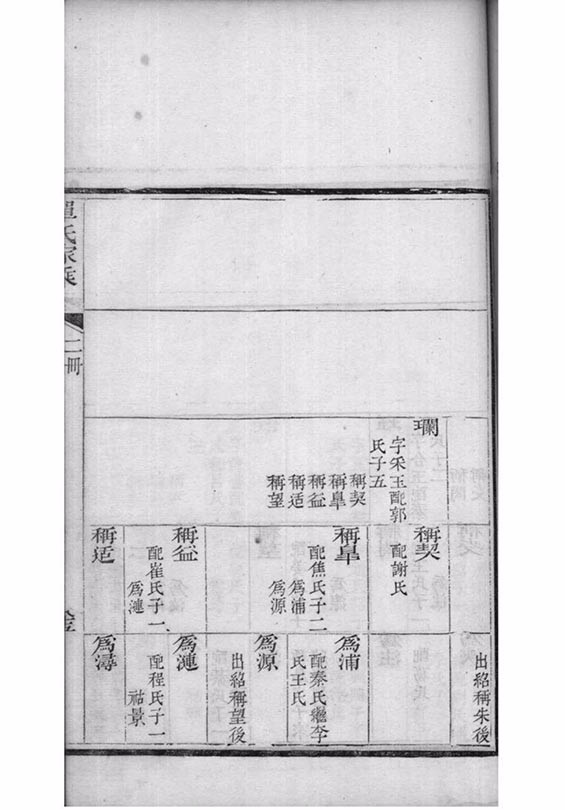 出紹稱朱後
瓓
字采玉配郭
氏子五
稱契
稱臯
稱益
稱适
稱望
稱契
配謝氏
稱臯
配焦氏子二
爲浦
爲源
稱益
配崔氏子一
爲漣
稱适
爲浦
配秦氏繼李
氏王氏
爲源
出紹稱望後
爲漣
配程氏子一
祜景
爲潯
單氏家乘
二冊